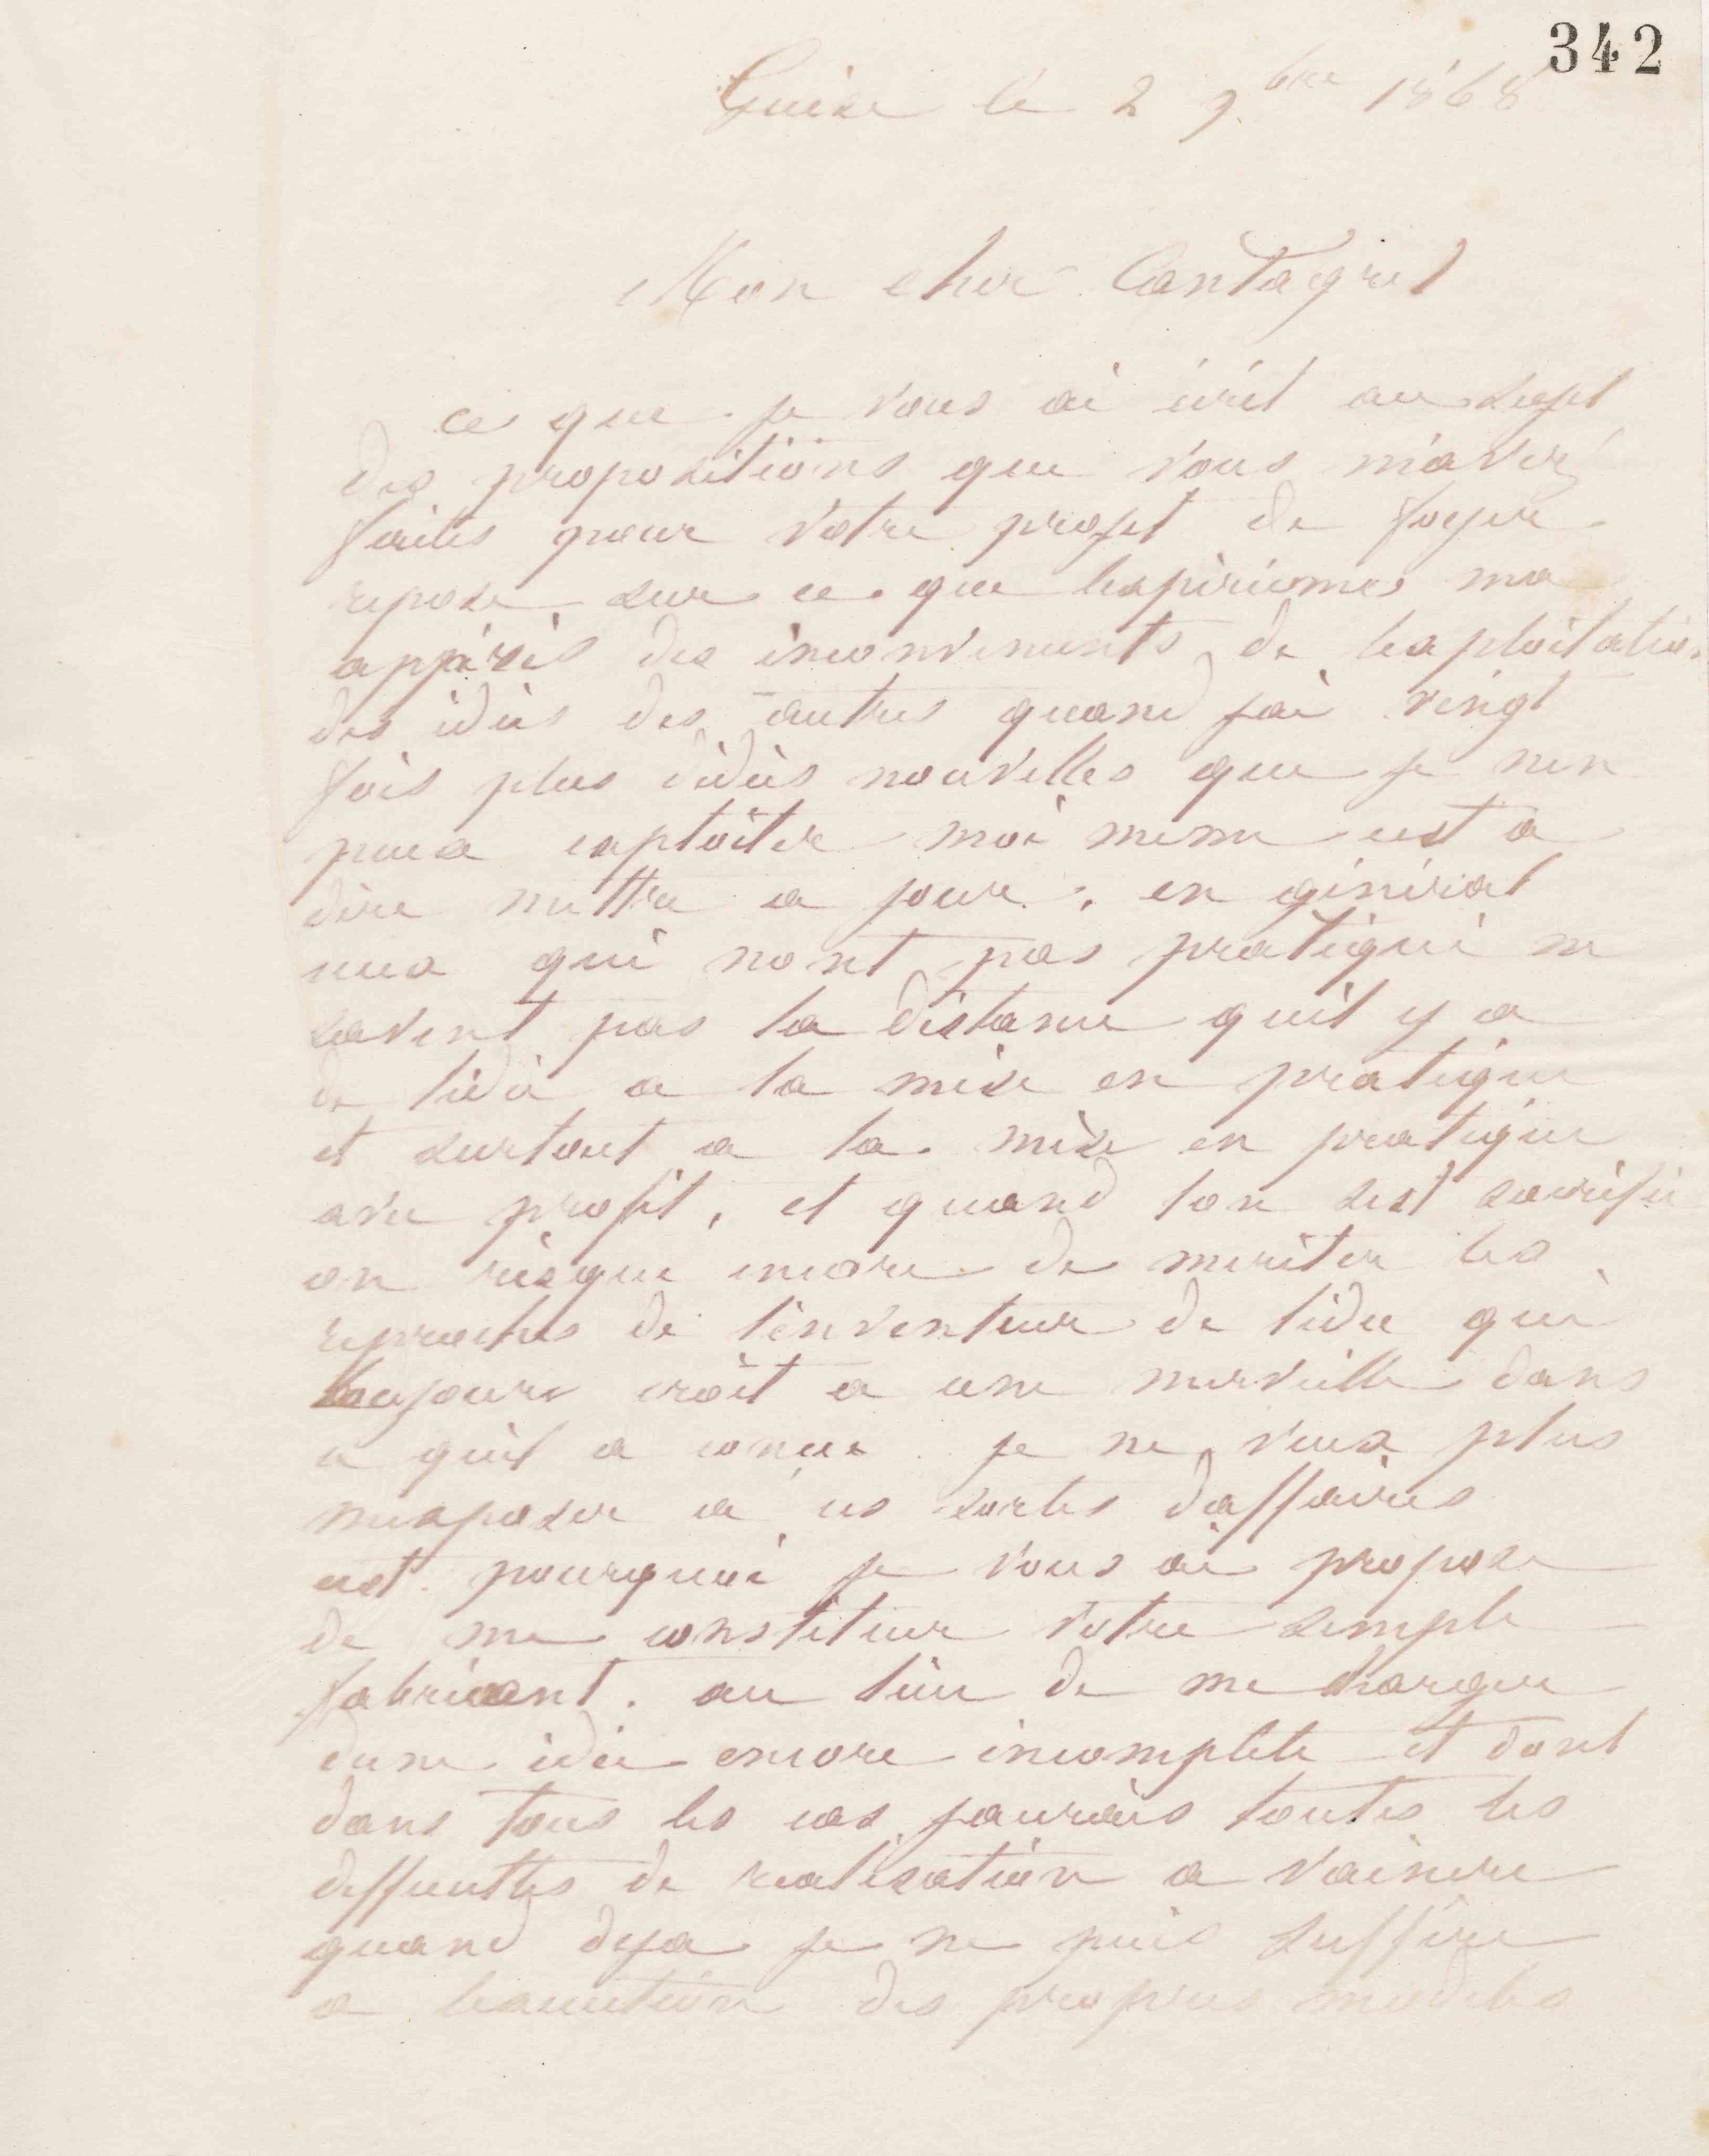 342
Guise le 2 9.bre 1868
Mon cher Cantagrel
ce que je vous ai écrit au sujet
des propositions que vous m'avez
faites pour votre projet de foyer
repose sur ce que lexpérience ma
appris des inconvenients de lexploitation
des idées des autres quand jai vingt
fois plus didées nouvelles que je nen
peux exploiter moi meme cest a
dire mettre a jour. en général
ceux qui nont pas pratiqué ne
savent pas la distance quil y a
de lidée a la mise en pratique
et surtout a la mise en pratique
avec profit, et quand lon sest sacrifié
on risque encore de meriter les
reproches de linventeur de lidee qui
toujours croit a une merveille dans
ce quil a concu. je ne veux plus
mexposer a ces sortes daffaires
cest pourquoi je vous ai propose
de me constituer votre simple
fabricant. au lieu de me charger
dune idée encore incomplete et dont
dans tous les cas jaurais toutes les
difficultes de realisation a vaincre
quand deja je ne puis suffire
a lexecution des propres modeles